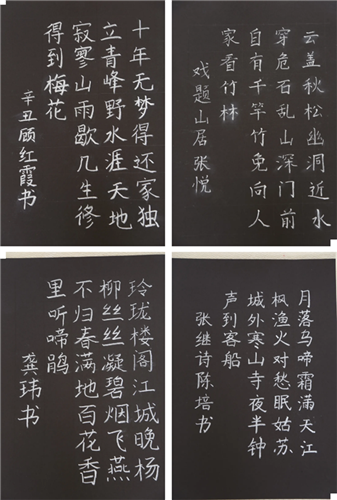 十年无梦得还家独
立青峰野水涯天地
寂寥山雨歇几生修
得到梅花
辛丑顾红霞书
云盖秋松幽洞近水
穿危石乱山深门前
自有千竿竹免向人
家看竹林
戏题山居张悦
玲珑楼阁江城晚杨
柳丝丝凝碧烟飞燕
不归春满地百花香
里听啼鹃
龚玮书
月落乌啼霜满天江
枫渔火对愁眠姑苏
城外寒山寺夜半钟
声到客船
张继诗陈培书